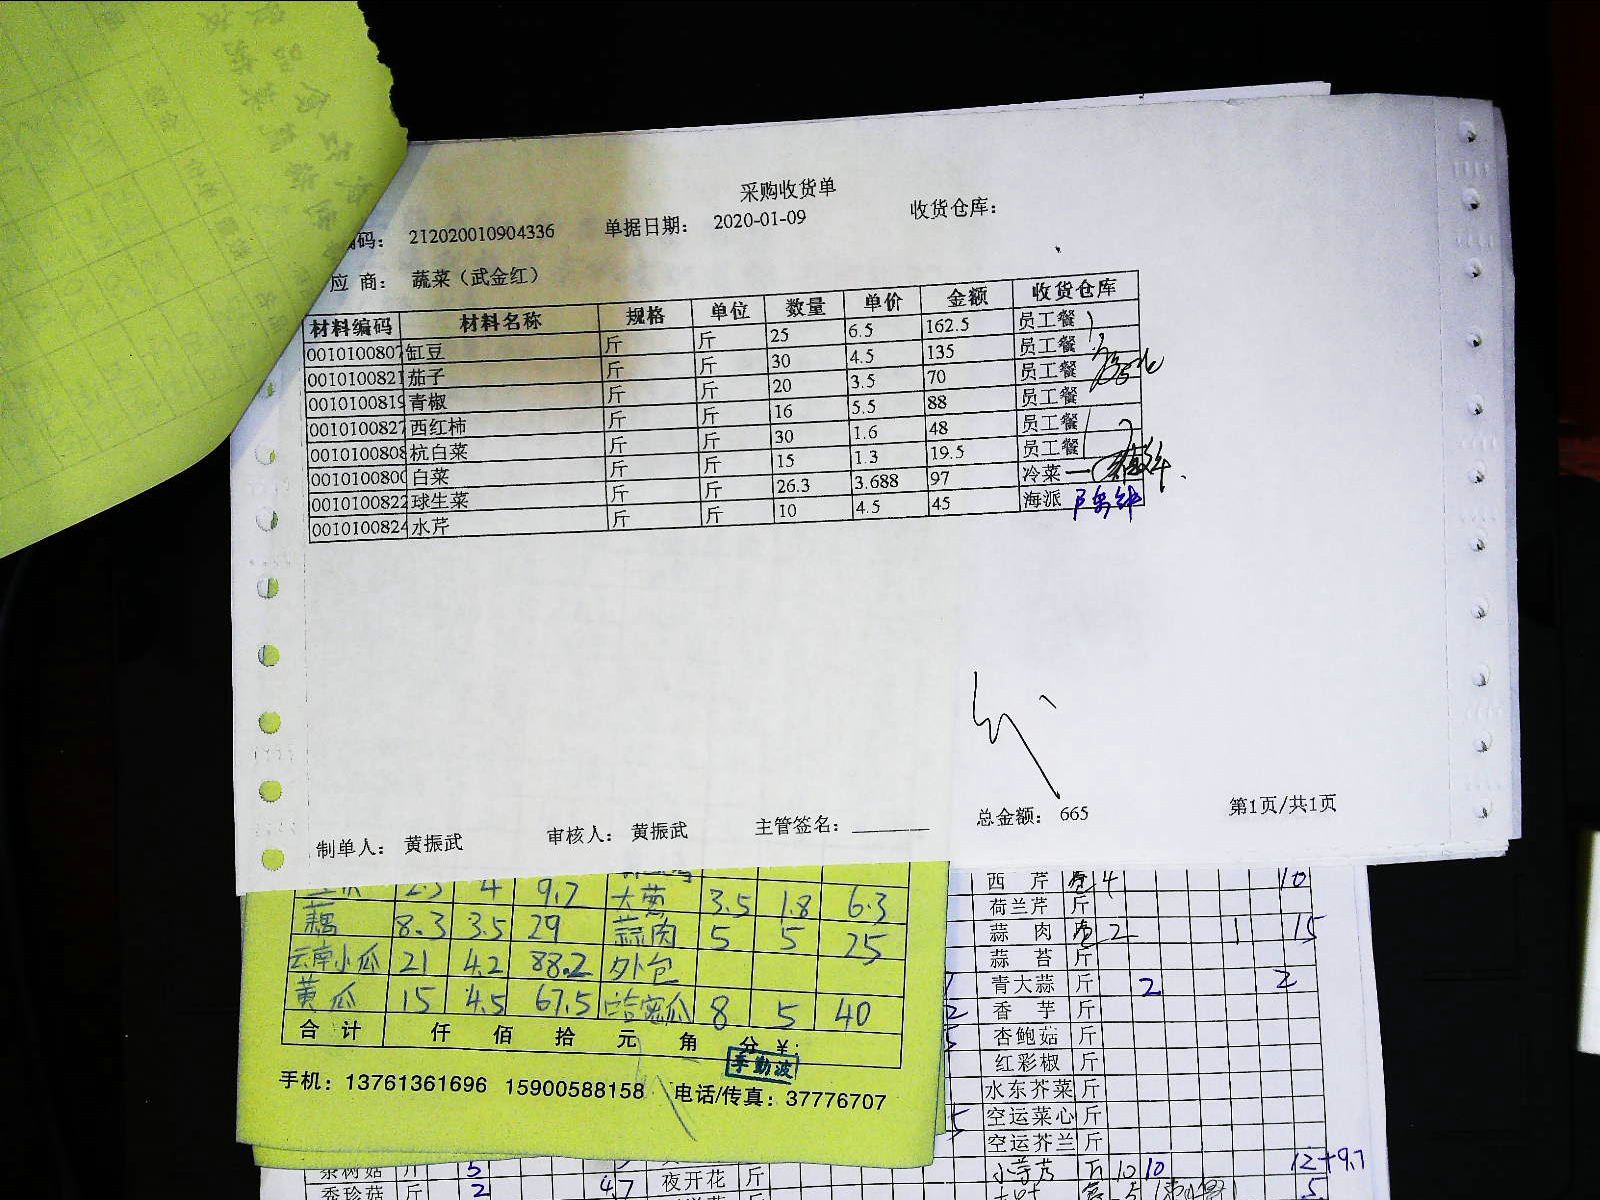 采购收货单
码： 212020010904336 单据日期： 2020-01-09 收货仓库：
应 商： 蔬菜（武金红）
材料编码 材料名称 规格 单位 数量 单价 金额 收货仓库
0010100807 缸豆 斤 斤 25 6.5 162.5 员工餐
0010100821 茄子 斤 斤 30 4.5 135 员工餐
0010100819 青椒 斤 斤 20 3.5 70 员工餐
0010100827 西红柿 斤 斤 16 5.5 88 员工餐
0010100808 杭白菜 斤 斤 30 1.6 48 员工餐
001010080 白菜 斤 斤 15 1.3 19.5 员工餐
0010100822 球生菜 斤 斤 26.3 3.688 97 冷菜
0010100824 水芹 斤 斤 10 4.5 45 海派
制单人： 黄振武 审核人： 黄振武 主管签名： 总金额： 665 第1页/共1页
2.3 4 9.2 大葱 3.5 1.8 6.3
藕 8.3 3.5 29 蒜肉 5 5 25
云南小瓜 21 4.2 88.2 外包
黄瓜 15 4.5 67.5 哈密瓜 8 5 40
合 计 仟 佰 拾 元 角 分 ¥：
李勤波
手机：13761361696 15900588158 电话/传真：37776707
西 芹 4 10
荷兰芹 斤
蒜 肉 2 1 15
蒜 苔 斤
青大蒜 斤 2 2
香 芋 斤
杏鲍菇 斤
红彩椒 斤
水东芥菜 斤
空运菜心 斤
空运芥兰 斤
斤 10 10 12+9.7
茶树菇 斤 5
秀珍菇 斤 2 4.7 夜开花 斤 5